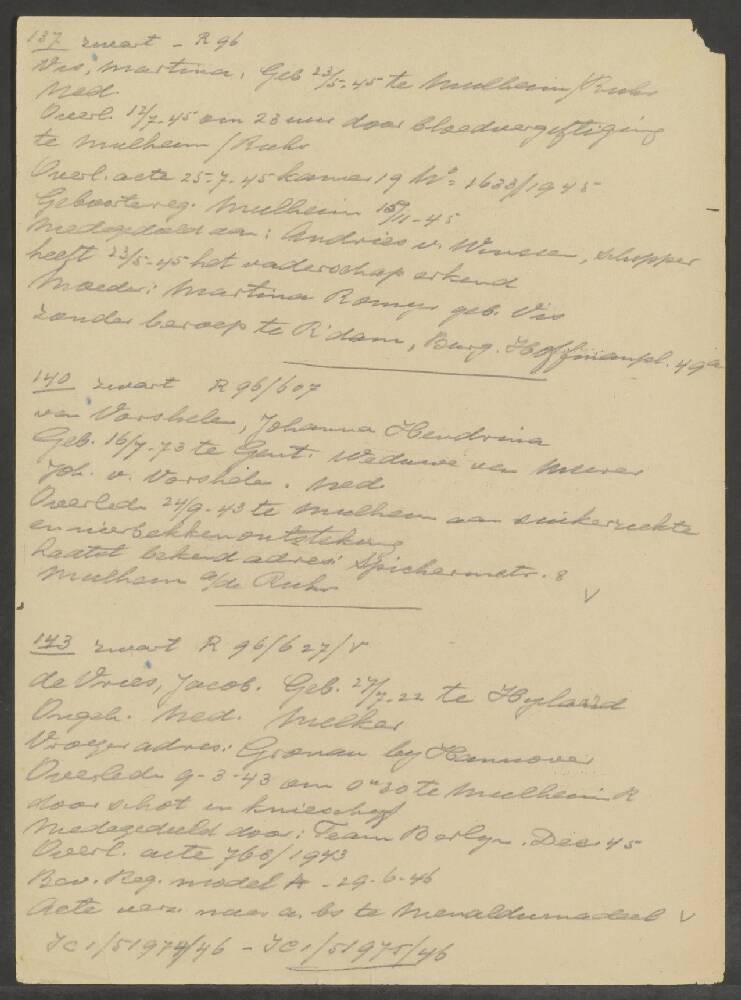 137 zwart - R 96
Vis, Martina, Geb 23/5-45 te Mulheim/Ruhr
Ned.
Overl. 12/7-45 om 23 uur door bloedvergiftiging
te Mulheim/Ruhr
Overl. acte 25-7-45 kamer 19 No= 1633/1945
Geboortereg. Mulheim 15/11-45
Medegedeeld aan: Andries v. Winsen, schipper
heeft 23/5-45 het vaderschap erkend
Moeder: Martina Romyn geb. Vis
zonder beroep te R'dam, Burg. Hoffmanpl. 49a
140 zwart R 96/607
van Vorshelen, Johanna Hendrina
Geb. 16/7-73 te Gent. Weduwe van
Joh. v. Vorshelen. Ned
Overleden 24/9-43 te Mulheim aan suikerziekte
en nierbekkenontsteking
Laatst bekend adres: Spichernstr. 8
Mulheim a/de Ruhr V
143 zwart R 96/627/V
de Vries, Jacob. Geb. 27/7-22 te Hylaard
Ongeh. Ned. Melker
Vroeger adres: Gronau by Hannover
Overleden 9-3-43 om 0u30 te Mulheim R
door schot in knieschijf
Medegedeeld door: Team Berlyn. Dec 45
Overl. acte 768/1943
Bev. Reg. model A - 29-6-46
Acte verz. naar a. bs te Menaldumadeel V
IC 1/51974/46 - IC 1/51975/46